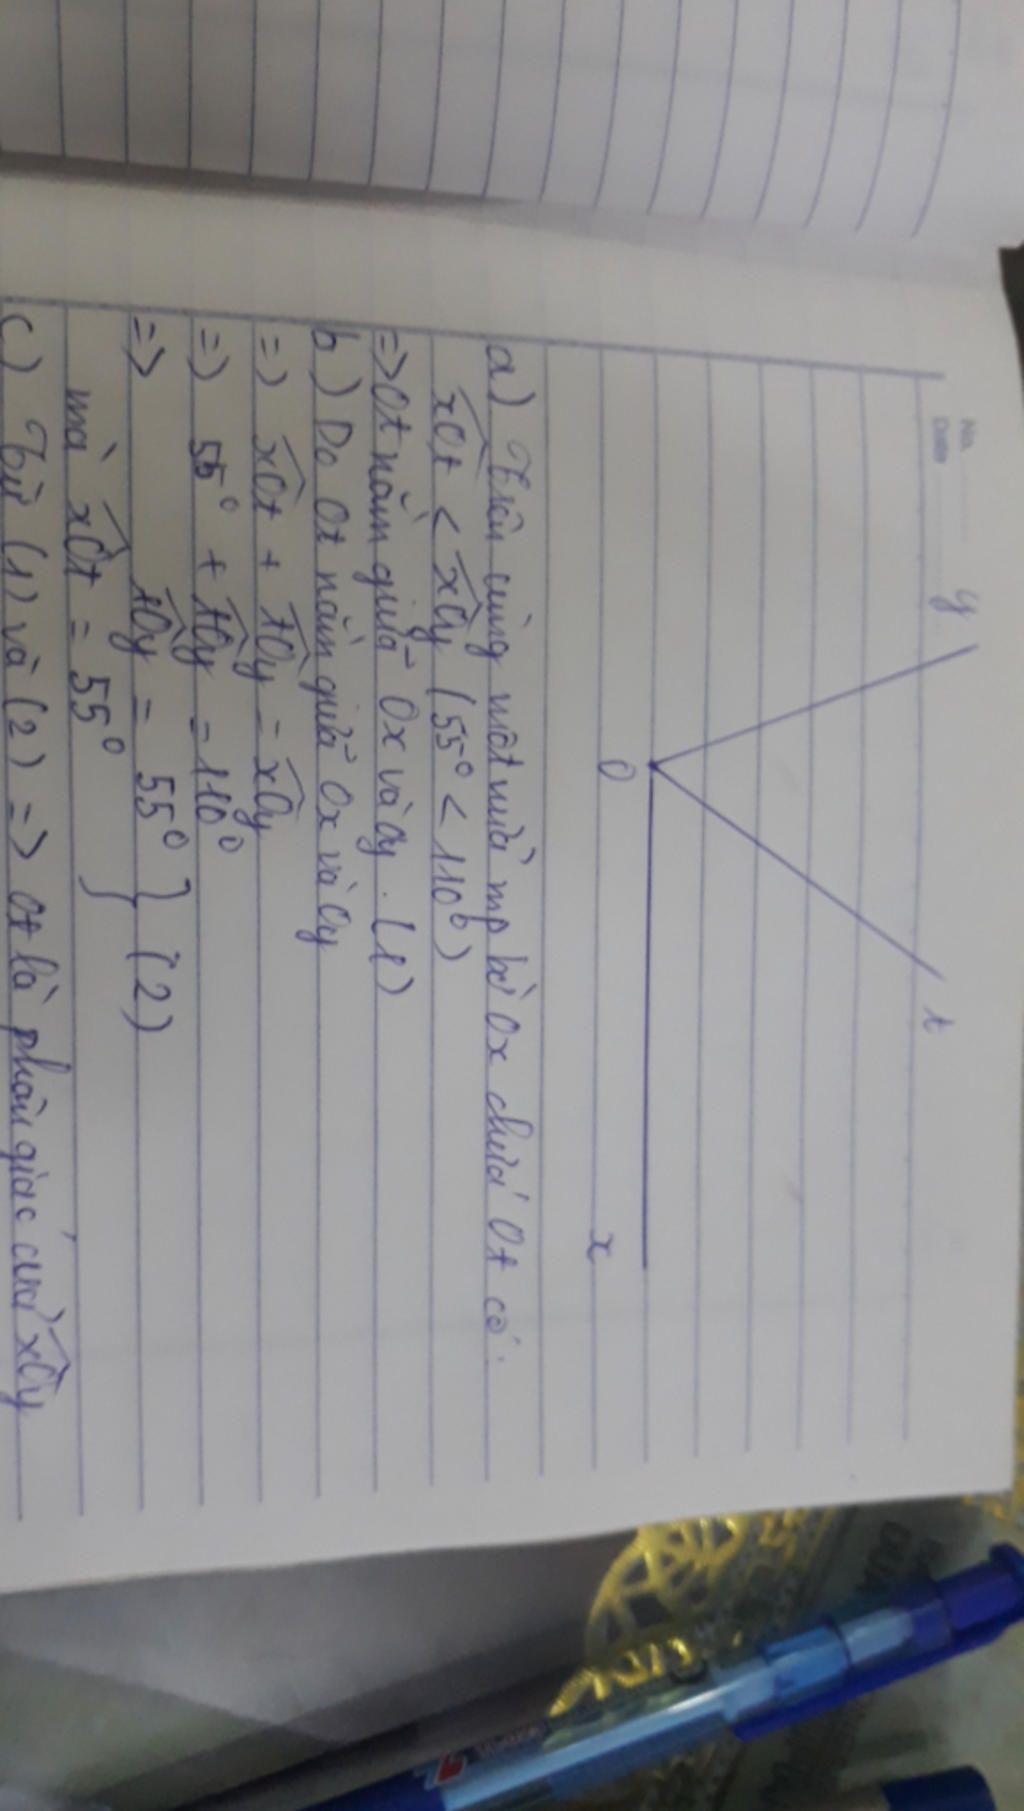 No.
Date
y
t
O
x
a) Trên cùng một nửa mp bờ Ox chứa Ot có:
x̂Ot < x̂Oy (55° < 110°)
=> Ot nằm giữa Ox và Oy. (1)
b) Do Ot nằm giữa Ox và Oy
=> x̂Ot + t̂Oy = x̂Oy
=> 55° + t̂Oy = 110°
=> t̂Oy = 55°
mà x̂Ot = 55° } (2)
c) Từ (1) và (2) => Ot là phân giác của x̂Oy